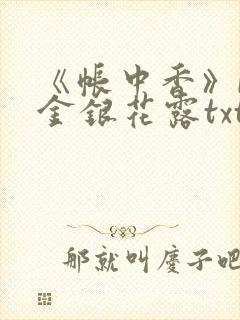 《帳中香》
金銀花露txt
那就叫慶子吧